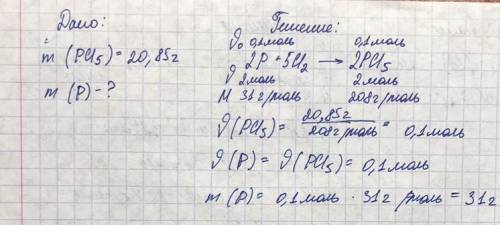 Дано:
m (PCl5) = 20,85г
m (P) - ?
Решение:
ν0 0,1моль 0,1моль
2P + 5Cl2 → 2PCl5
ν 2моль 2моль
M 31г/моль 208г/моль
ν (PCl5) = 20,85г / 208г/моль = 0,1моль
ν (P) = ν (PCl5) = 0,1моль
m (P) = 0,1моль · 31г/моль = 31г